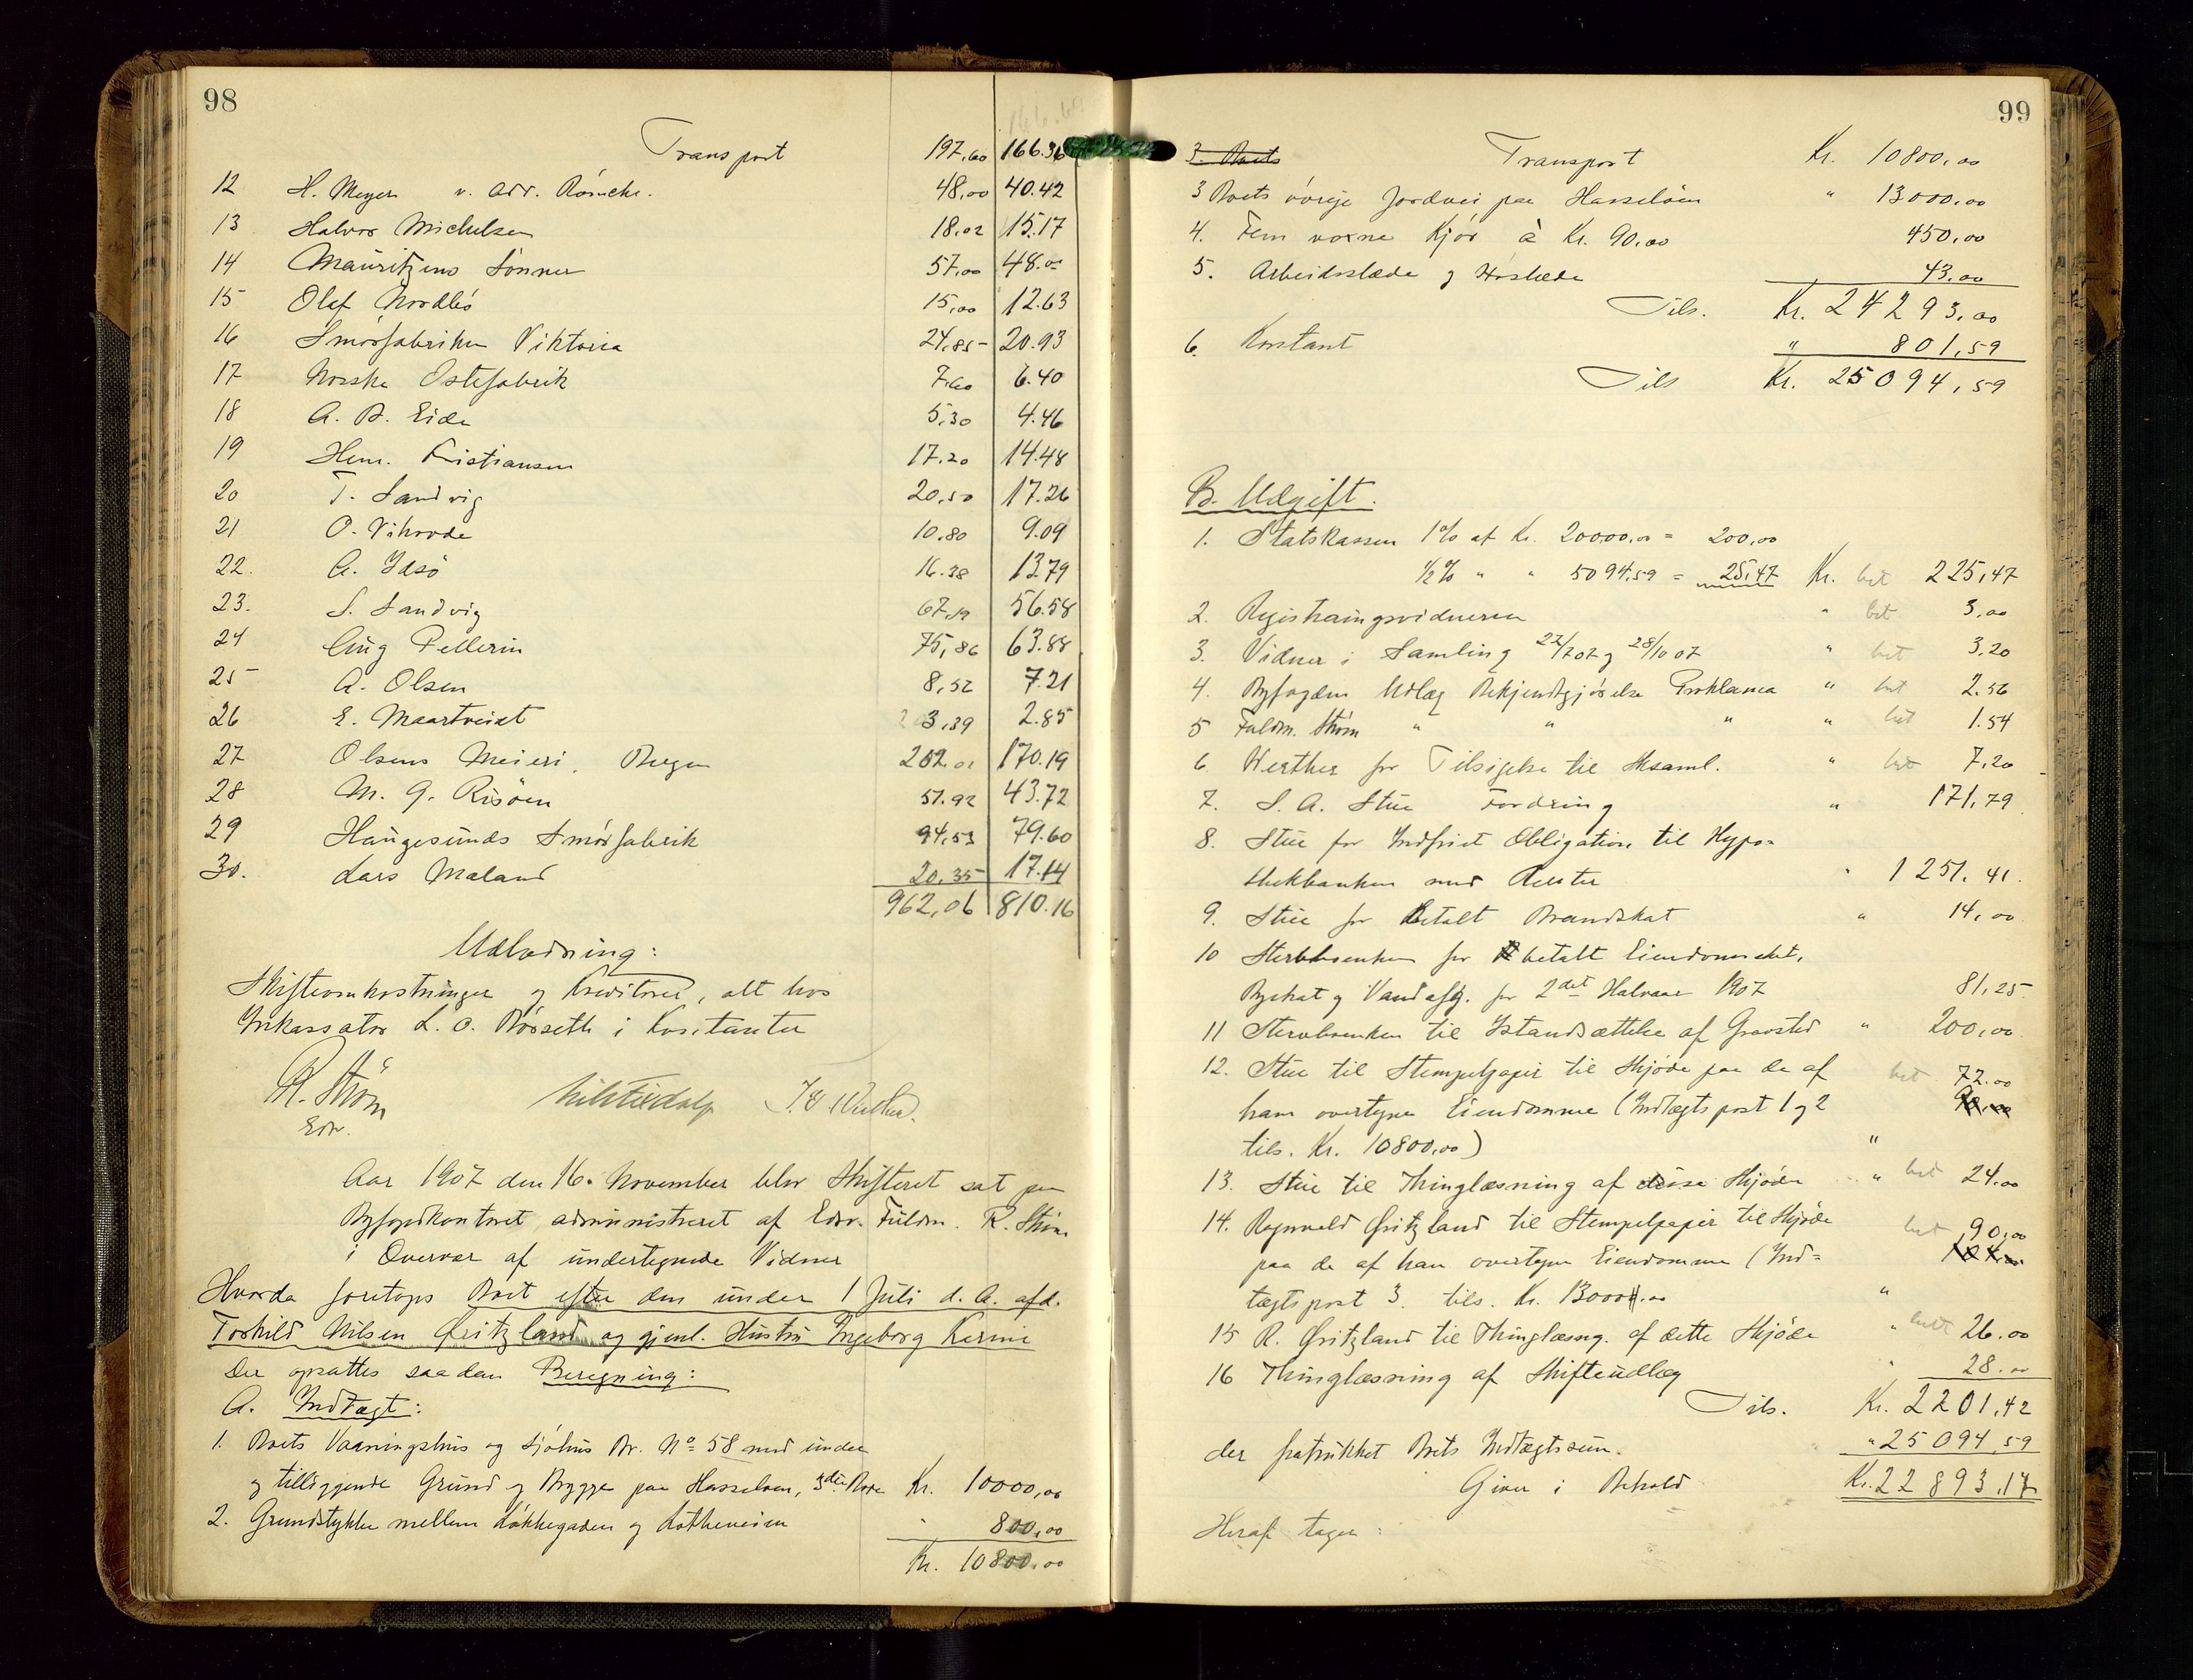 98
Transport 197,60 166.36
12 H. Meyer v. adv. 48,00 40.42
13 Halvor Michelsen 18,02 15.17
14 Mauritzens Sönner 57,00 48.00
15 Olaf Nordbö 15,00 12.63
16 Smörfabriken Viktoria 24,85 20.93
17 Norske Ostefabrik 7,60 6.40
18 A. B. Eide 5,30 4.46
19 Henr. Kristiansen 17.20 14.48
20 T. Sandvig 20,50 17.26
21 O. Vikrode 10,80 9.09
22. A. Idsö 16.38 13.79
23. S. Sandvig 67,19 56.58
24 Aug Pellerin 75,86 63.88
25 A. Olsen 8,52 7.21
26 E. Maartveidt 3,39 2.85
27 Olsens Meieri, Bergen 202.01 170.19
28 M. G. Risöen 51.92 43.72
29 Haugesunds Smörfabrik 94,53 79.60
30. Lars Maland 20,35 17.14
962,06 810.16
Udlodning:
Skifteomkostninger og Kreditorer, alt hos
Inkassator L. O. Rösseth i Kontanter
R. Ström
Edv.
Aar 1907 den 16. November blev Skifteret sat paa
Byfogedkontoret administreret af Edsv. Fuldm. R. Ström
i Overvær af undertegnede Vidner
Hvorda foretoges Boet efter den under 1 Juli d. A. afd.
Torkild Nilsen Qvitzland og gjenl. Hustru Ingeborg Karine
Der opsattes saadan Beregning:
A. Indtægt:
1. Boets Vaaningshus og Sjöhus Br. No 58 med under
og tilliggende Grund og Brygge paa Hasseloen, 3die Rode Kr. 10000,00
2. Grundstykke mellem Lökkegaden og Lotheveien " 800,00
Kr. 10800.00
99
3. Boets Transport Kr. 10800,00
3 Boets övrige Jordvei paa Hasselöen " 13000,00
4. Fem voxne Kjör à Kr. 90,00 450,00
5. Arbeidsslæde og Höslæde 43,00
Tils. Kr. 24293,00
6. Kontant " 801,59
Tils Kr. 25094,59
B. Udgift.
1. Statskassen 1% af Kr. 20000,00 = 200,00
½% " " 5094,59 = 25,47 Kr. bet 225,47
2. Registreringsvidnerne " bet 3,00
3. Vidner i Samling 22/7 07 og 28/10 07 " bet 3,20
4. Byfogdens Udlæg Bekjendtgjörelse Proklama " bet 2.56
5 Fuldm. Ström " " " " bet 1.54
6. Werther for Tilsigelse til Sksaml. " bet 7,20
7. S. A. Stue Fordring " 171,79
8. Stue for Indfriet Obligation til Hypo=
thekbanken med Renter " 1251.41.
9. Stue for betalt Brandskat " 14,00
10 Sterkbsenken for betalt Eiendomsskat,
Byskat og Vandafg. for 2det Halvaar 1907 81,25
11 Stervbsenken til Istandsættelse af Gravsted " 200,00
12. Stue til Stempelpapir til Skjöde paa de af bet 72.00
ham overtagne Eiendomme (Indtægtspost 1 og 2
tils. Kr. 10800,00) "
13. Stue til Thinglæsning af disse Skjöder " bet 24.00
14. Ragnvald Qvitzland til Stempelpapir til Skjöde bet 90,00
paa de af ham overtagne Eiendomme (Ind=
tægtspost 3. tils. Kr. 13000.00 "
15 R. Qvitzland til Thinglæsng. af dette Skjöde " bet 26.00
16 Thinglæsning af Skifteudlæg " 28.00
Tils. Kr. 2201,42
der fratrukket Boets Indtægtssum. " 25094,59
Giver i Behold Kr. 22893,17
Heraf tager: